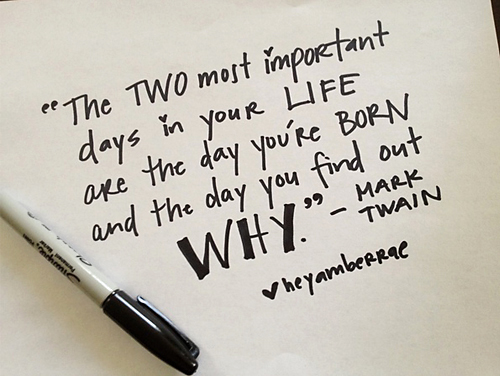 "The TWO most important
days in your LIFE
are the day you're BORN
and the day you find out
WHY." - MARK
TWAIN
♥heyamberrae
Sharpie